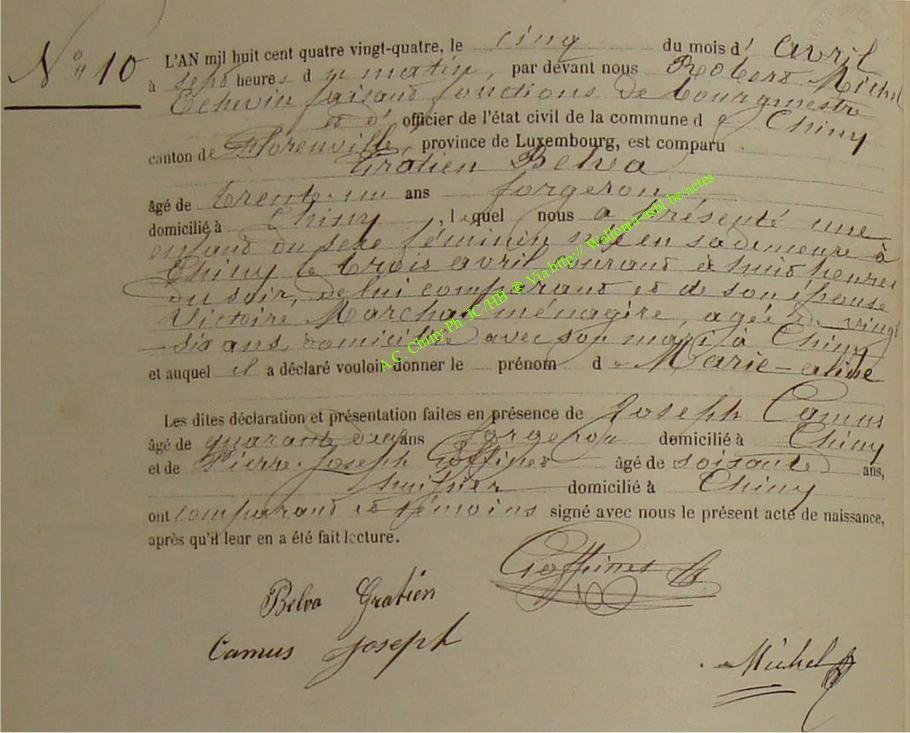 N° 10
L'AN mil huit cent quatre vingt-quatre, le cinq du mois d' avril
à sept heures d u matin, par devant nous Robert Michel
Echevin faisant fonctions de bourgmestre
et d' officier de l'état civil de la commune d e Chiny
canton de Florenville, province de Luxembourg, est comparu
Gratien Belva
âgé de trente-un ans forgeron
domicilié à Chiny, lequel nous a présenté une
enfant du sexe féminin née en sa demeure à
Chiny le trois avril courant à huit heures
du soir, de lui comparant et de son épouse
Victoire Marchal ménagère, agée de vingt
six ans domiciliée avec son mari à Chiny
et auquel il a déclaré vouloir donner le prénom d e Marie-aline
Les dites déclaration et présentation faites en présence de Joseph Camus
âgé de quarante deux ans forgeron domicilié à Chiny
et de Pierre-Joseph Goffinet âgé de soisante ans,
domicilié à Chiny
ont comparant et témoins signé avec nous le présent acte de naissance,
après qu'il leur en a été fait lecture.
Goffinet
Belva Gratien
Camus Joseph
Michel
A.C. Chiny Ph. JC /HB @ Via http:// Wallonia-asbl.be/actes